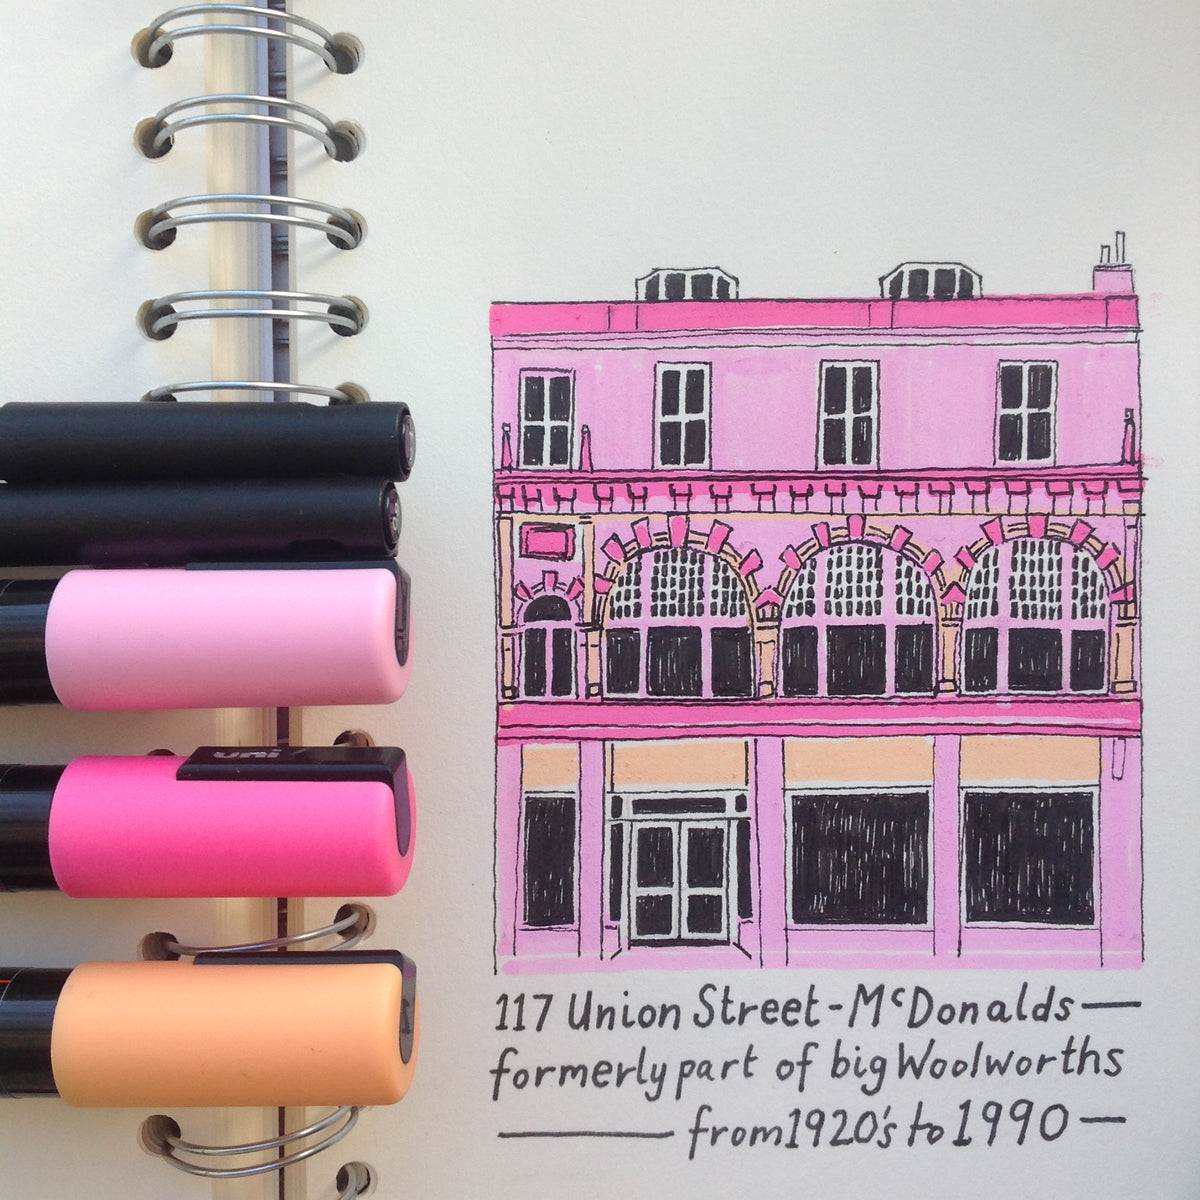 uni
117 Union Street - McDonalds —
formerly part of big Woolworths
— from 1920's to 1990 —